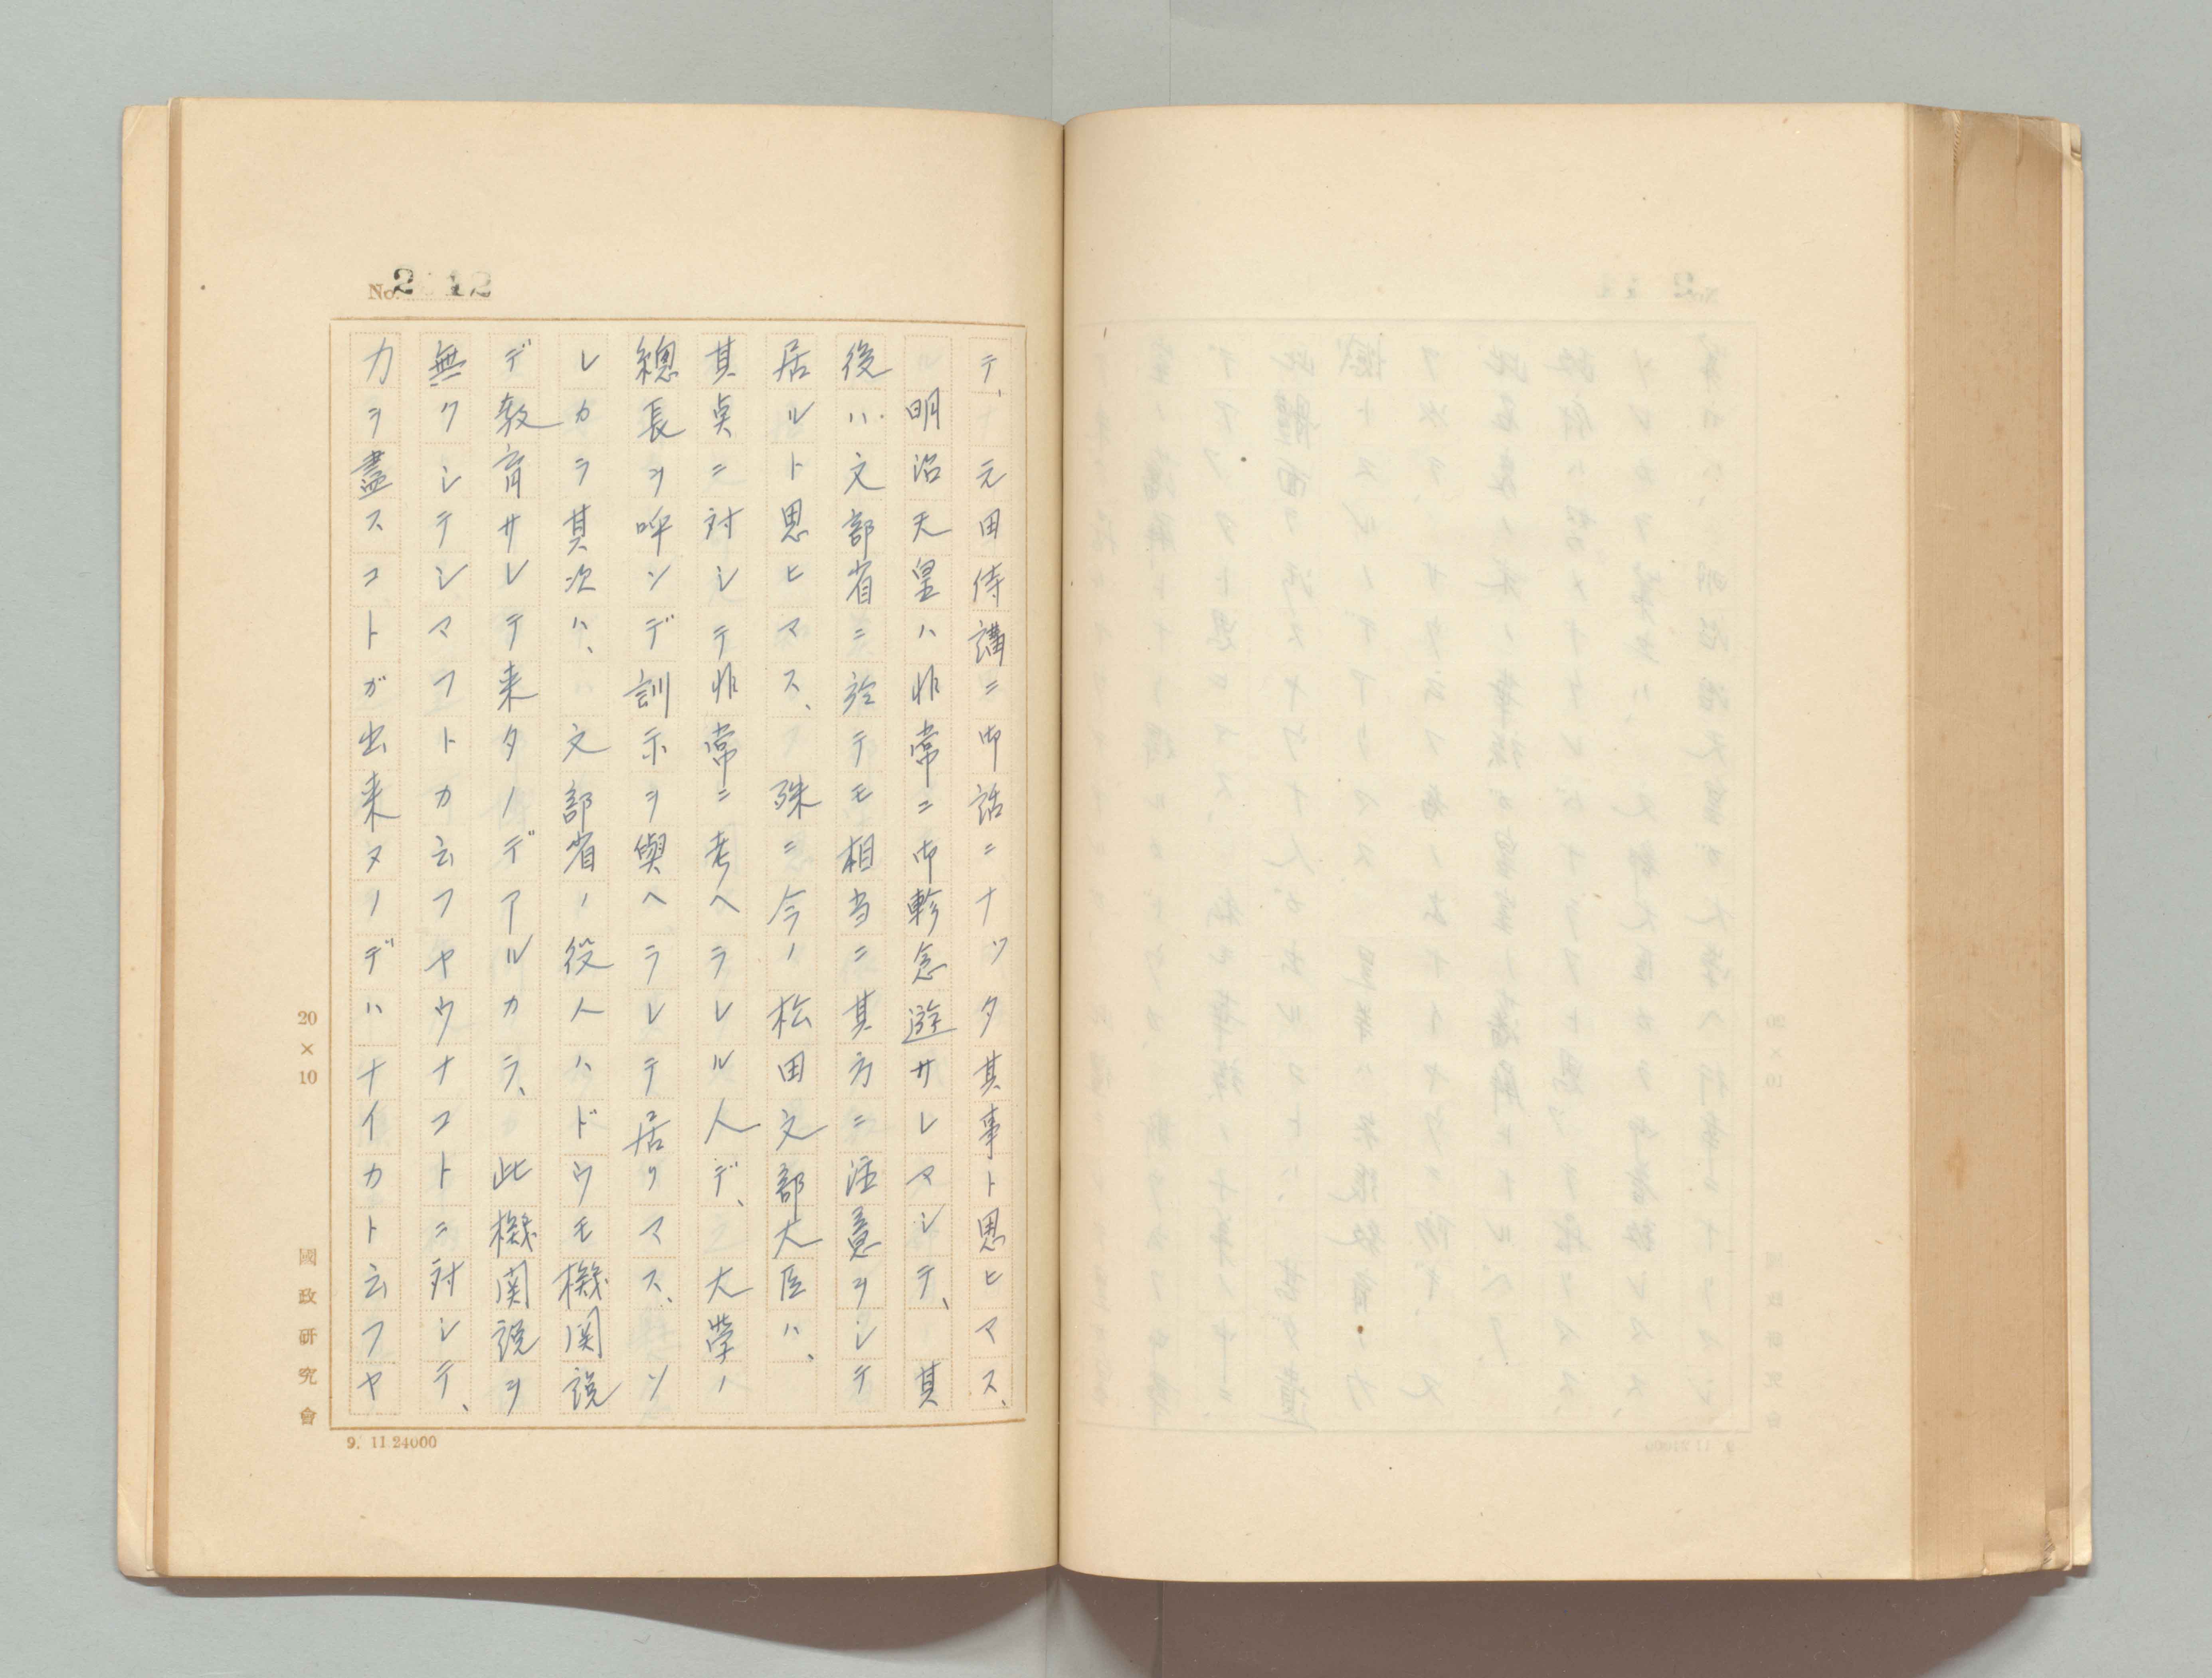 No. 2 12
テ、元田侍講ニ御話ニナツタ其事ト思ヒマス、
明治天皇ハ非常ニ御軫念遊サレマシテ、其
後ハ文部省ニ於テモ相当ニ其方ニ注意ヲシテ
居ルト思ヒマス、殊ニ今ノ松田文部大臣ハ、
其点ニ対シテ非常ニ考ヘラレル人デ、大学ノ
總長ヲ呼ンデ訓示ヲ與ヘラレテ居リマス、ソ
レカラ其次ハ、文部省ノ役人ハドウモ機関説
デ教育サレテ来タノデアルカラ、此機関説ヲ
無クシテシマフトカ云フヤウナコトニ対シテ、
力ヲ盡スコトガ出来ヌノデハナイカト云フヤ
20×10
國政研究會
9. 11.24000